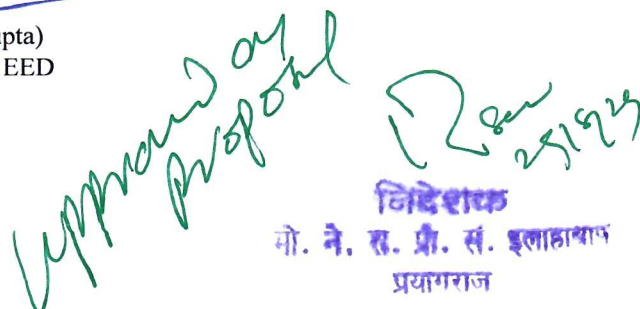 pta)
EED
Approved as
proposed
निदेशक
मो. ने. रा. प्रौ. सं. इलाहाबाद
प्रयागराज